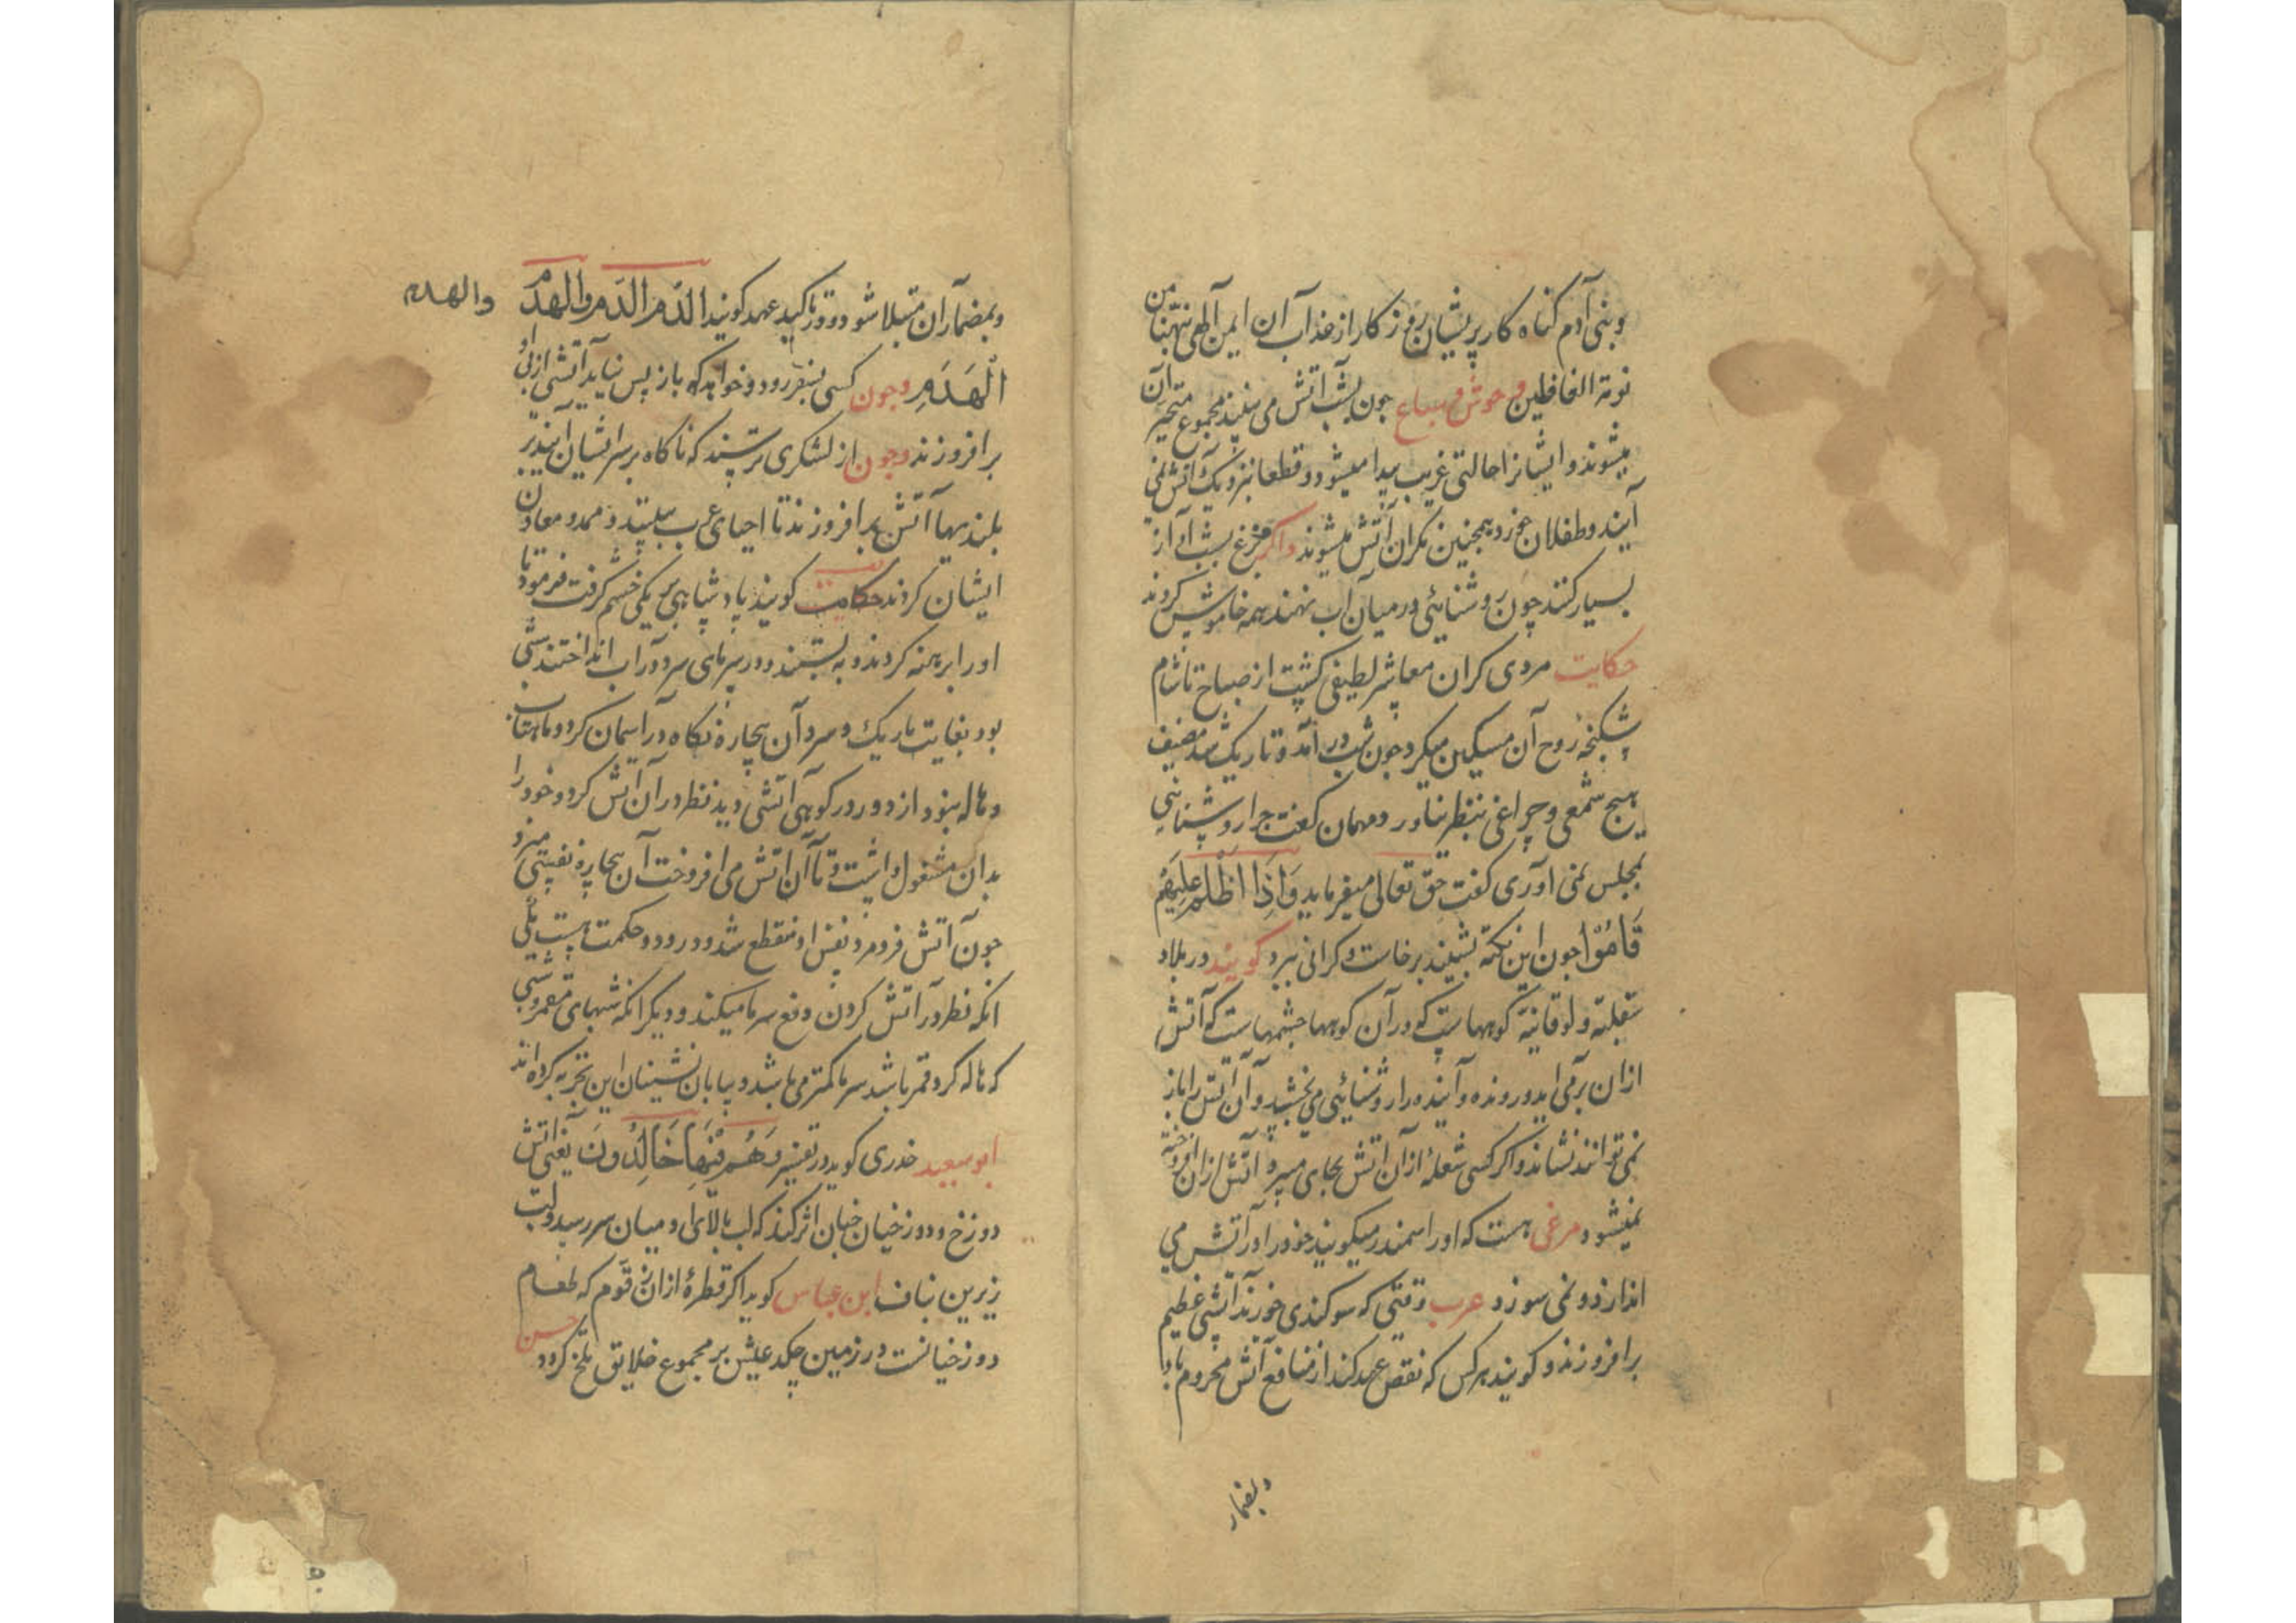 وبنی آدم کناه کار پریشان روزکار از عذاب آن ایمن آلهی نبهنا من
نومة الغافلین وحوش و سباع چون بشب آتش می بینند مجموع متحیر آن
میشوند و ایشانرا حالتی غریب پیدا میشود و قطعا بنزدیک آتش نمی
آیند و طفلان خورد همچنین نکران آتش میشوند واکر مرغ بشب آواز
بسیار کنند چون روشنائی در میان آب نهند همه خاموش کردند
حکایت مردی کران معاشر لطیفی کشت از صباح تا شام
شکنجه روح آن مسکین میکرد چون شب در آمد و تاریک شد مضیف
هیچ شمعی و چراغی بنظر نیاورد مهمان کفت چرا روشنایی
بمجلس نمی آوری کفت حق تعالی میفرماید وَاِذَا اَظْلَمَ عَلَیْهِمْ
قَامُوْا چون این نکته بشنید برخاست و کرانی ببرد کویند در بلاد
سقلیه و لوقانیه کوههاست که در آن کوهها چشمهاست که آتش
ازان بر می آید و رونده و آینده را روشنائی می بخشد و آن آتش را باز
نمی توانند نشاند و اکر کسی شعلهٔ ازان آتش بجای میبرد آتش ازان افروخته
نمیشود مرغی هست که او را سمندر میکویند خود را در آتش می
اندازد و نمی سوزد عرب وقتی که سوکندی خورند آتشی عظیم
برافروزند و کویند هرکس که نقض عهد کند از منافع آتش محروم باد
وبمضار
وبمضار آن مبتلا شود و در تاکید عهد کویند الدَم الدَم والهدَم
والهدم
الْهَدَمِ وچون کسی بسفر رود و خواهند که باز پس نیاید آتشی از پی او
برافروزند وچون از لشکری ترسند که ناکاه بر سر ایشان آیند بر
بلندیها آتش برافروزند تا احیای عرب ببینند و ممد و معاون
ایشان کردند حکایت کویند پادشاهی بر یکی خشم کرفت فرمود تا
او را برهنه کردند و به بستند و در سرمای سرد در آب انداختند شبی
بود بغایت تاریک و سرد آن بیچاره نکاه در آسمان کرد و ماهتاب
و هاله نبود از دور در کوهی آتشی دید نظر در آن آتش کرد و خود را
بدان مشغول داشت و تا آن آتش می افروخت آن بیچاره نفسی میزد
چون آتش فرو مرد نفس او منقطع شد و درو دو حکمت هست یکی
آنکه نظر در آتش کردن دفع سرما میکند و دیکر آنکه شبهای مقمر و شبی
که هاله کرد قمر باشد سرما کمتر می باشد و بیابان نشینان این تجربه کرده اند
ابو سعید خدری کوید در تفسیر وَهُمْ فِیْهَا خَالِدُونَ یعنی آتش
دوزخ و دوزخیان چنان اثر کند که لب بالای او میان سر رسد و لب
زیرین بناف ابن عباس کوید اکر قطرهٔ ازان زقوم که طعام
دوزخیانست در زمین چکد عیش بر مجموع خلایق تلخ کردد حسن